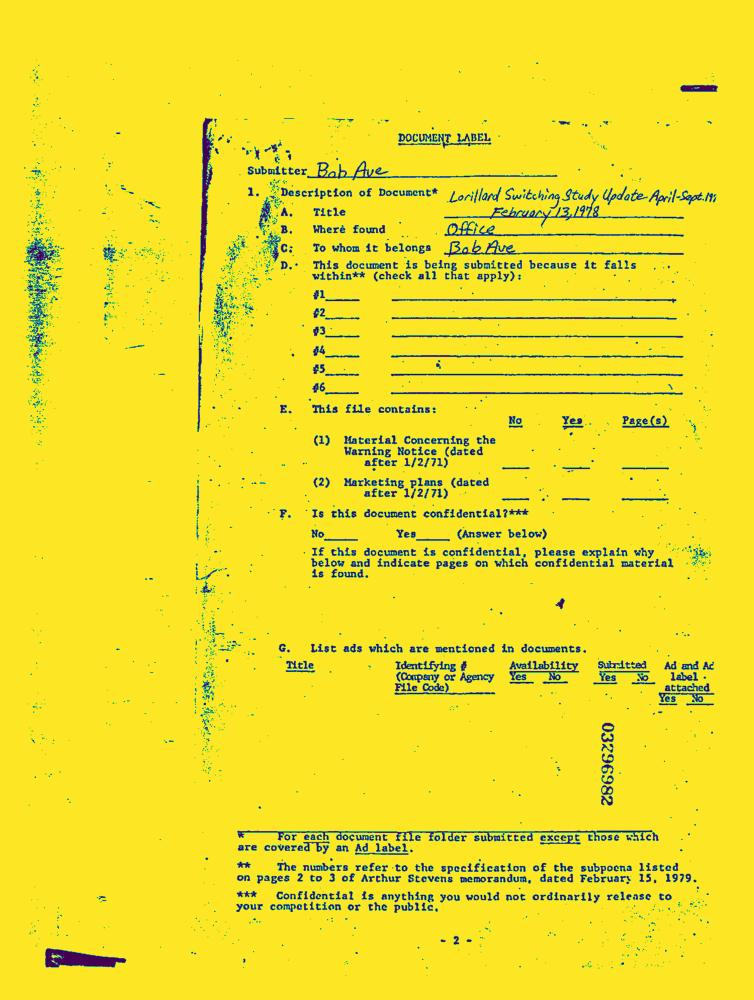 DOCUMENT LABEL
Submitter Bob Ave
1. Description of Document* Lorillard Switching Study Update-April-Sept.
A. Title February 13, 1978
B. Where found Office
C. To whom it belongs Bob Ave
D. This document is being submitted because it falls
within** (check all that apply):
#1
#2
#3
#4
#5
#6
E. This file contains:
No Yes Page(s)
(1) Material Concerning the
Warning Notice (dated
after 1/2/71)
(2) Marketing plans (dated
after 1/2/71)
F. Is this document confidential?***
No Yes (Answer below)
If this document is confidential, please explain why
below and indicate pages on which confidential material
is found.
G. List ads which are mentioned in documents.
Title Identifying # Availability Submitted Ad and Ad
(Company or Agency Yes No Yes No label
File Code) attached
Yes No
03296982
* For each document file folder submitted except those which
are covered by an Ad label.
** The numbers refer to the specification of the subpoena listed
on pages 2 to 3 of Arthur Stevens memorandum, dated February 15, 1979.
*** Confidential is anything you would not ordinarily release to
your competition or the public.
- 2 -